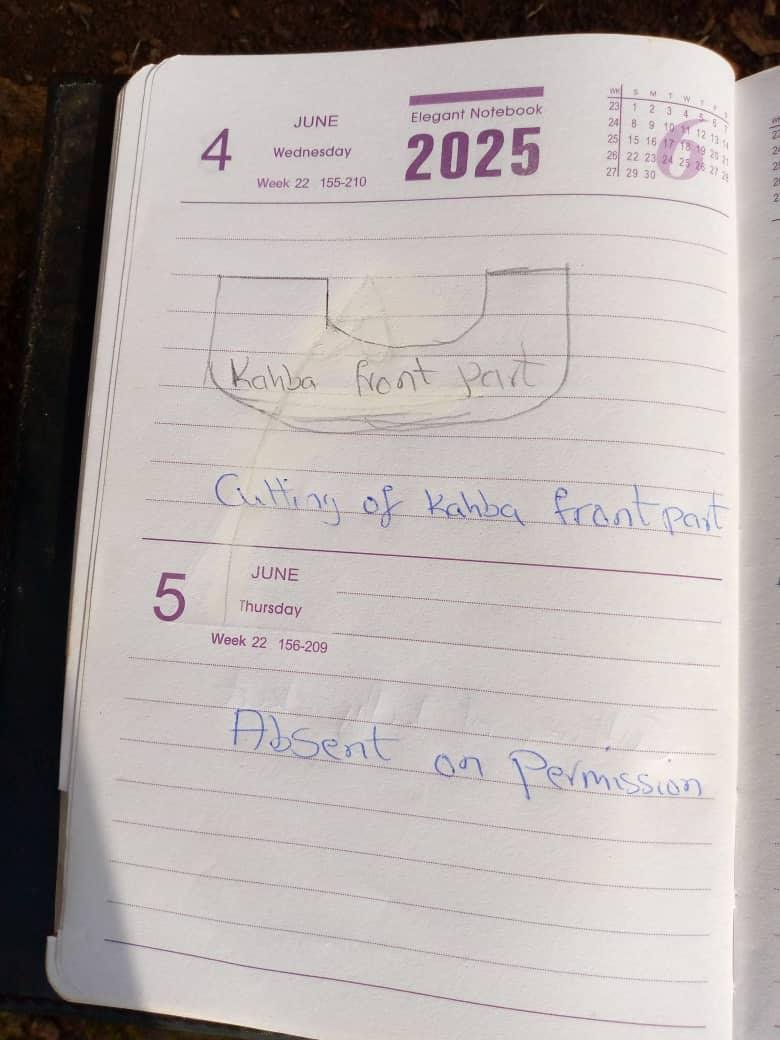 4
JUNE
Wednesday
Week 22 155-210
Elegant Notebook
2025
WK S M T W T F S
23 1 2 3 4 5 6 7
24 8 9 10 11 12 13 14
25 15 16 17 18 19 20 21
26 22 23 24 25 26 27 28
27 29 30
6
Kahba front part
Cutting of Kahba front part
5
JUNE
Thursday
Week 22 156-209
Absent on Permission